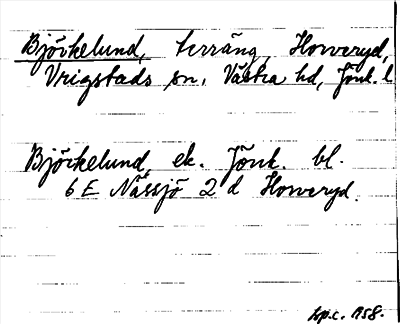 Björkelund, terräng, Howeryd,
Vrigstads sn, Västra hd, Jönk. l
Björkelund, ek. Jönk. bl.
6 E Nässjö 2 d Howeryd.
1958.